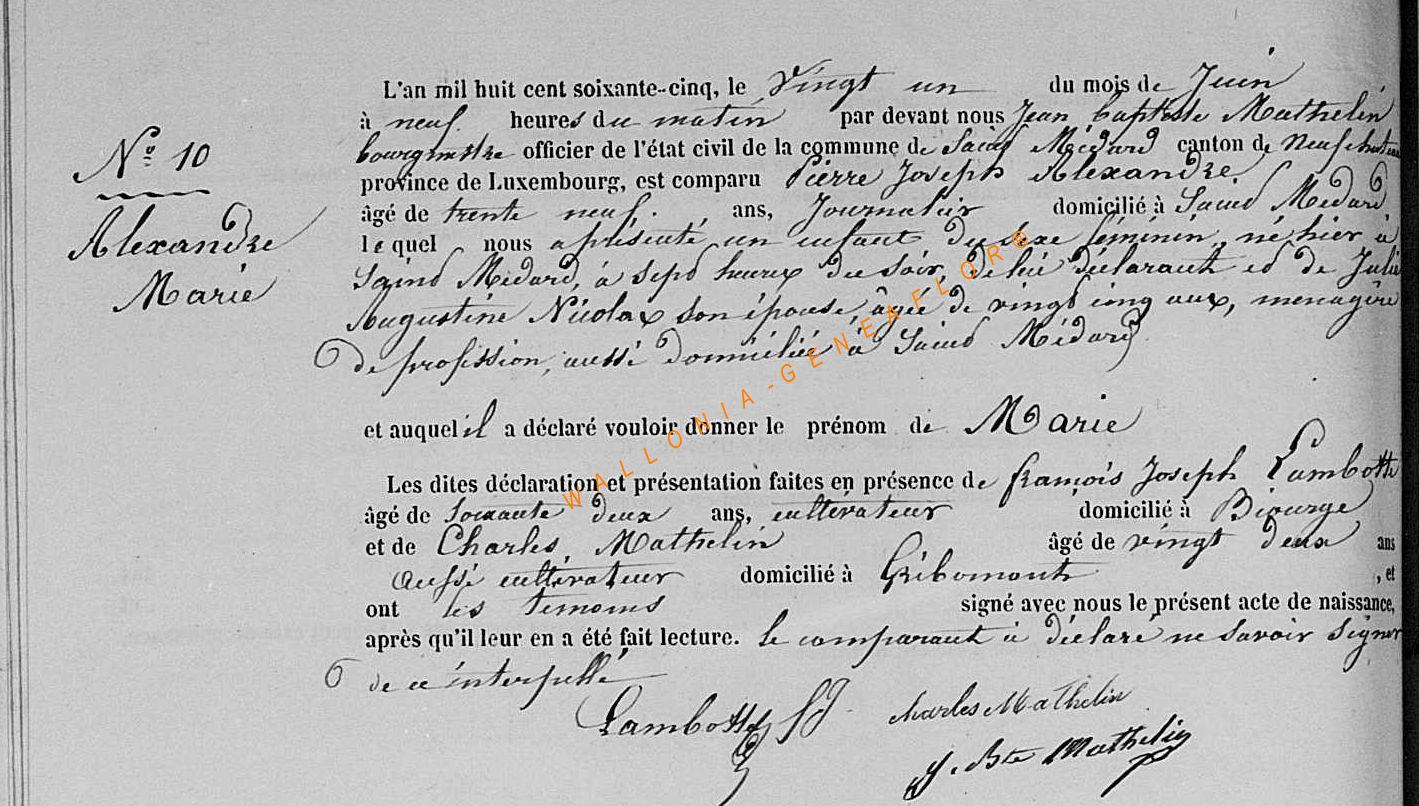 N.º 10
Alexandre
Marie
L'an mil huit cent soixante-cinq, le Vingt un du mois de Juin
à neuf heures du matin par devant nous Jean baptiste Mathelin
bourgmestre officier de l'état civil de la commune de Saint Médard canton de Neufchateau
province de Luxembourg, est comparu Pierre Joseph Alexandre
âgé de trente neuf ans, Journalier domicilié à Saint Médard
lequel nous a présenté un enfant du sexe féminin, né hier à
Saint Médard, à sept heures du soir, de lui déclarant et de Julie
Augustine Nicolas son épouse, âgée de vingt cinq ans, menagère
de profession, aussi domiciliée à Saint Médard
et auquel il a déclaré vouloir donner le prénom de Marie
Les dites déclaration et présentation faites en présence de françois Joseph Lambotte
âgé de soixante deux ans, cultivateur domicilié à Biourge
et de Charles Mathelin âgé de vingt deux ans
aussi cultivateur domicilié à Gribomont , et
ont les temoins signé avec nous le présent acte de naissance,
après qu'il leur en a été fait lecture. le comparant à déclaré ne savoir signer
de ce interpellé
Lambotte fJ. charles Mathelin
J. Bte Mathelin
WALLONIA-GENEAFLORE